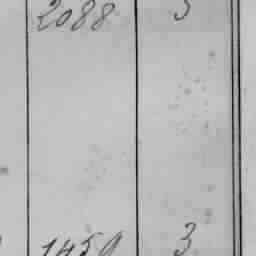 2088 3
1459 3